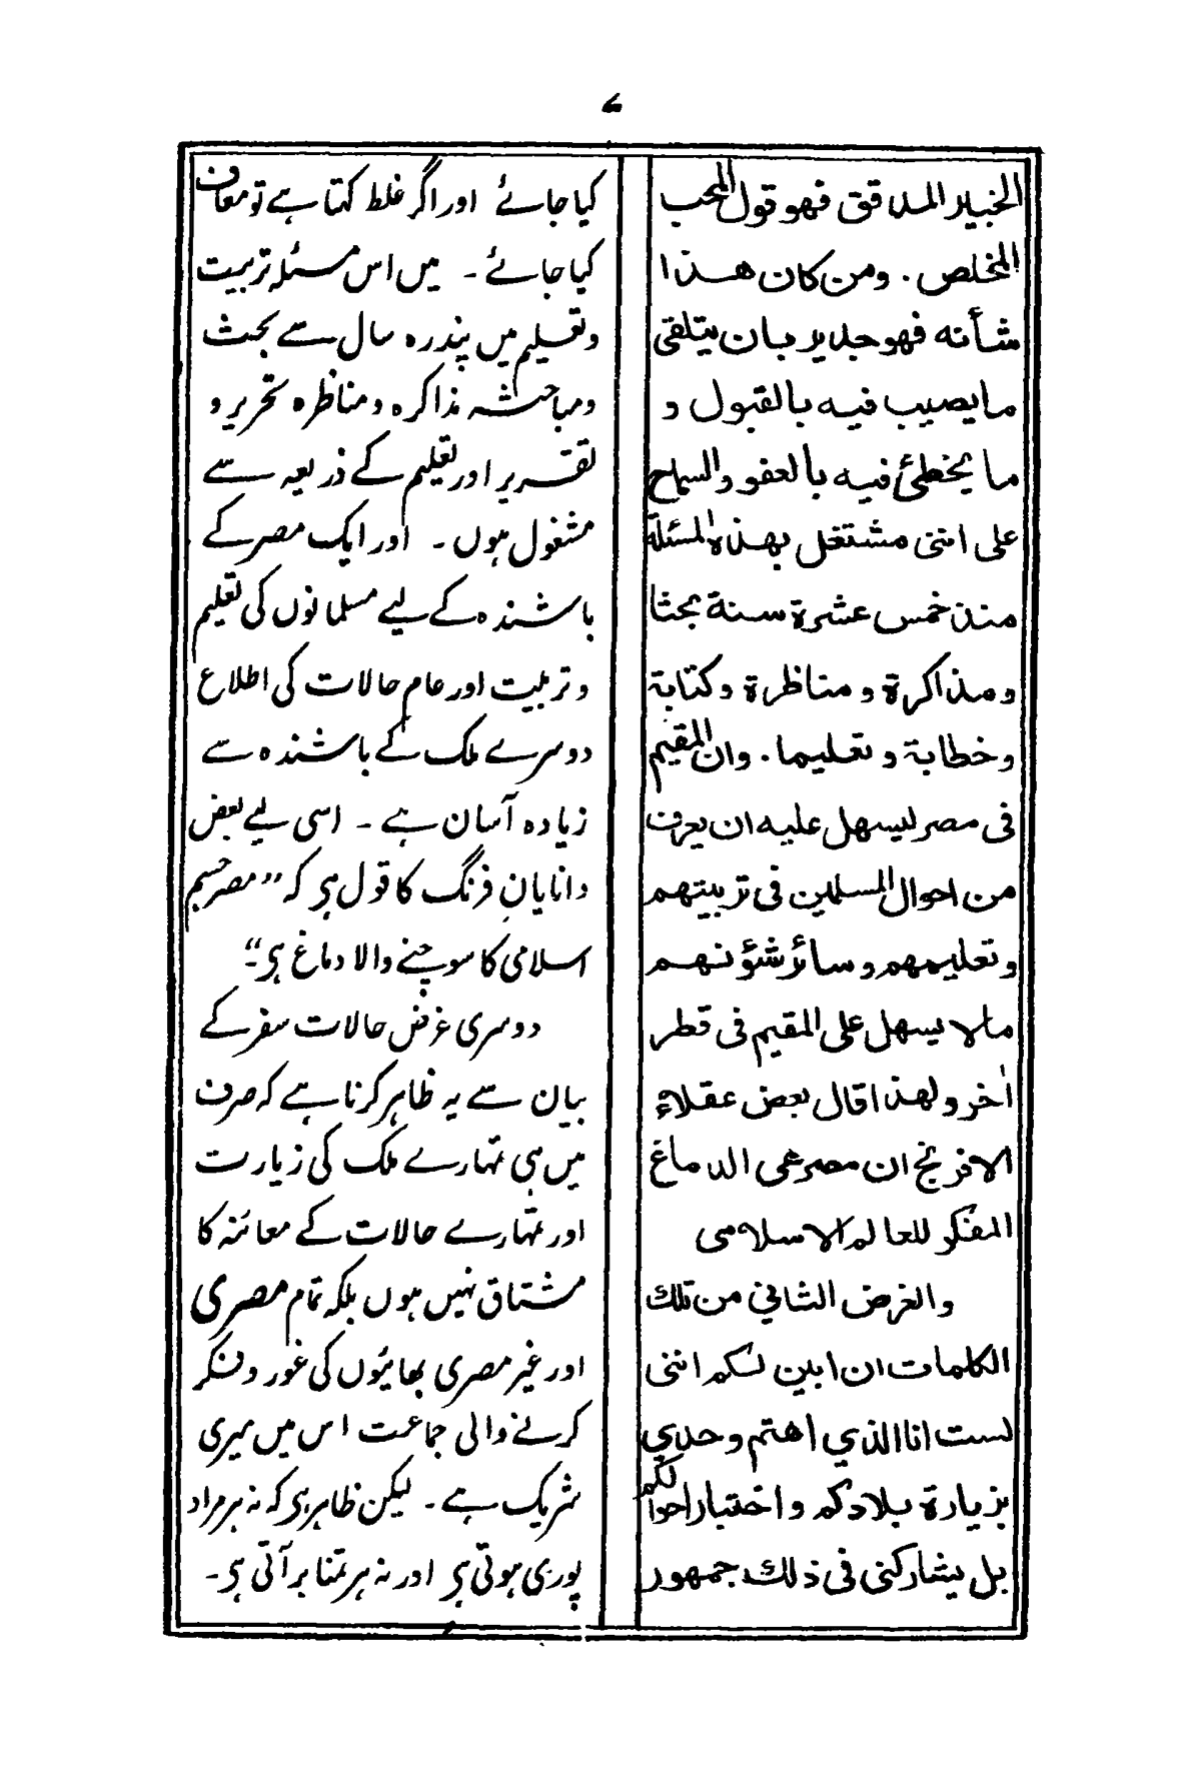 ۷
الخبير المدقق فهو قول المحب
المخلص. ومن كان هذا
شأنه فهو جدير بان يتلقى
ما يصيب فيه بالقبول و
ما يخطئ فيه بالعفو والسماح
على اننى مشتغل بهذه المسئلة
منذ خمس عشرة سنة بحثا
ومذاكرة ومناظرة وكتابة
وخطابة وتعليما. وان المقيم
فى مصر ليسهل عليه ان يعرف
من احوال المسلمين فى تربيتهم
وتعليمهم وسائر شؤنهم
مالا يسهل على المقيم فى قطر
أخر ولهذا قال بعض عقلاء
الافرنج ان مصر هى الدماغ
المفكر للعالم الاسلامى
والغرض الثاني من تلك
الكلمات ان ابين لكم اننى
لست انا الذي اهتم وحدي
بزيارة بلادكم واختبار احوالكم
بل يشاركنى فى ذلك جمهور
کیا جائے اور اگر غلط کہتا ہے تو معاف
کیا جائے ۔ میں اس مسئلہ تربیت
وتعلیم میں پندرہ سال سے بحث
ومباحثہ مذاکرہ ومناظرہ تحریر و
تقریر اور تعلیم کے ذریعہ سے
مشغول ہوں ۔ اور ایک مصر کے
باشندہ کے لیے مسلمانوں کی تعلیم
وتربیت اور عام حالات کی اطلاع
دوسرے ملک کے باشندہ سے
زیادہ آسان ہے ۔ اسی لیے بعض
دانایانِ فرنگ کا قول ہی کہ ”مصر جسم
اسلامی کا سوچنے والا دماغ ہی“۔
دوسری غرض حالات سفر کے
بیان سے یہ ظاہر کرنا ہے کہ صرف
میں ہی تمہارے ملک کی زیارت
اور تمہارے حالات کے معائنہ کا
مشتاق نہیں ہوں بلکہ تمام مصری
اور غیر مصری بھائیوں کی غور وفکر
کرنے والی جماعت اس میں میری
شریک ہے ۔ لیکن ظاہر ہی کہ نہ ہر مراد
پوری ہوتی ہی اور نہ ہر تمنا بر آتی ہی ۔